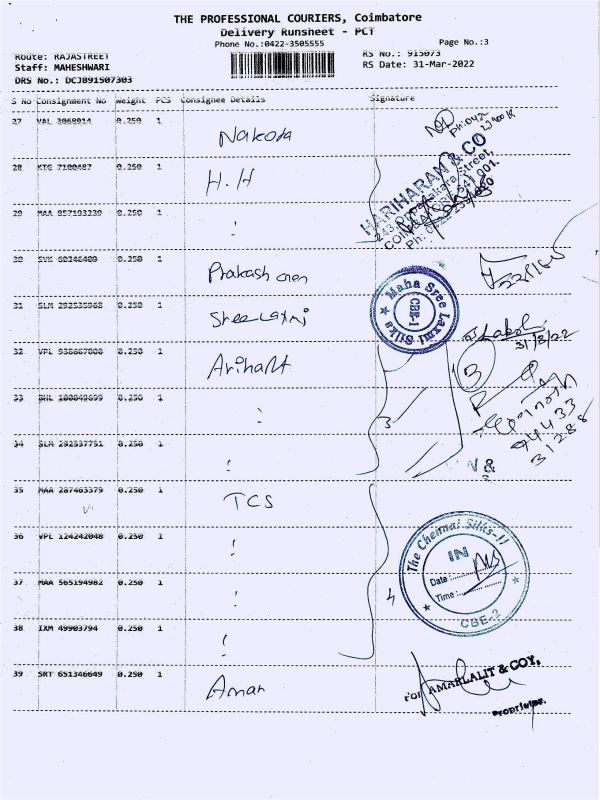 THE PROFESSIONAL COURIERS, Coimbatore
Delivery Runsheet - PCT
Phone No.:0422-3505555
Page No.:3
Route: RAJASTREET
RS No.: 915073
Staff: MAHESHWARI
RS Date: 31-Mar-2022
DRS No.: DCJ891507303
S No Consignment No Weight PCS Consignee Details Signature
27 VAL 0.250 1 Nakoda
28 KTG 7100487 0.250 1 H.H
HARIHARAN & CO
COIMBATORE - 641 001.
29 MAA 857193239 0.250 1
30 0.250 1 Prakash
31 SLM 292535968 0.250 1 Sree Laxmi
Maha Sree Laxmi Silks
CBE-1
31/3/22
32 VPL 938667008 0.250 1 Arihant
33 0.250 1
3
94433
31288
34 SLM 292537751 0.250 1
35 MAA 287463379 0.250 1 TCS
36 VPL 124242048 0.250 1
The Chennai Silks-II
IN
Date:
Time:
CBE-2
37 MAA 565194982 0.250 1
4
38 IXM 49903794 0.250 1
39 SRT 651346649 0.250 1 Aman
For AMARLALIT & COY,
Proprietor.